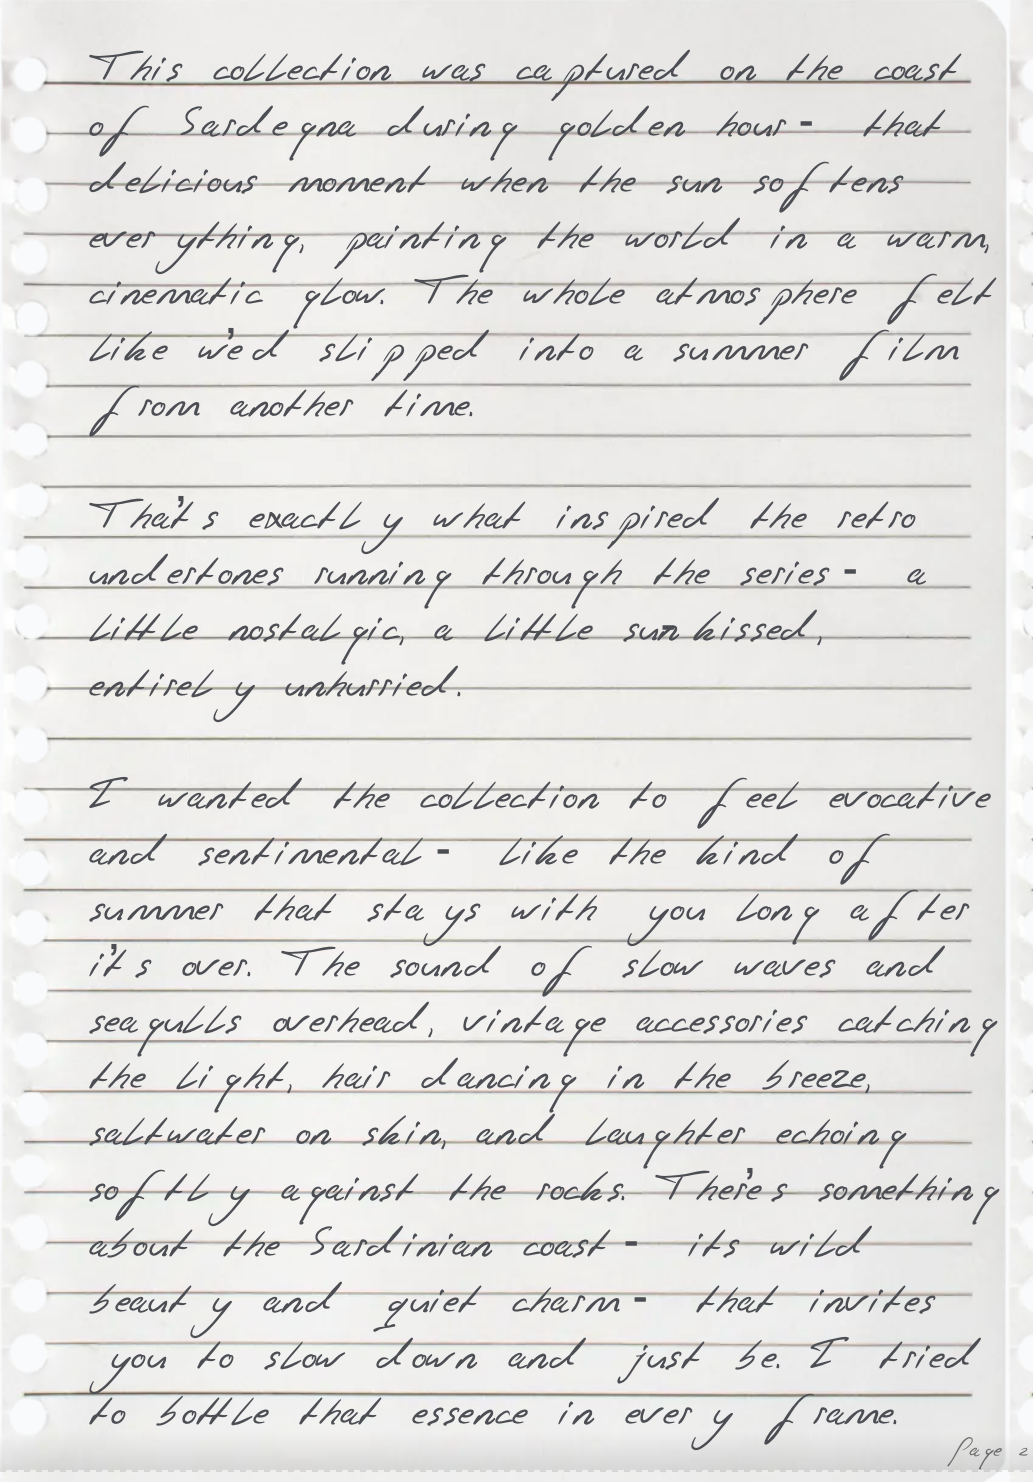 This collection was captured on the coast
of Sardegna during golden hour - that
delicious moment when the sun softens
everything, painting the world in a warm,
cinematic glow. The whole atmosphere felt
like we'd slipped into a summer film
from another time.
That's exactly what inspired the retro
undertones running through the series - a
little nostalgic, a little sun kissed,
entirely unhurried.
I wanted the collection to feel evocative
and sentimental - like the kind of
summer that stays with you long after
it's over. The sound of slow waves and
seagulls overhead, vintage accessories catching
the light, hair dancing in the breeze,
saltwater on skin, and laughter echoing
softly against the rocks. There's something
about the Sardinian coast - its wild
beauty and quiet charm - that invites
you to slow down and just be. I tried
to bottle that essence in every frame.
Page 2